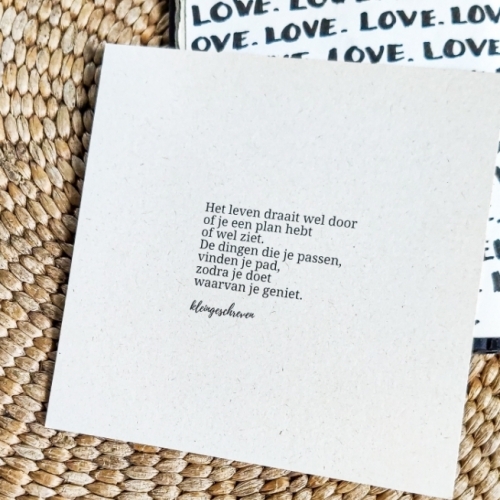 LOVE. LOVE. LOVE. LOV
OVE. LOVE. LOVE. LOVE
LOVE. LOVE
Het leven draait wel door
of je een plan hebt
of wel ziet.
De dingen die je passen,
vinden je pad,
zodra je doet
waarvan je geniet.
kleingeschreven